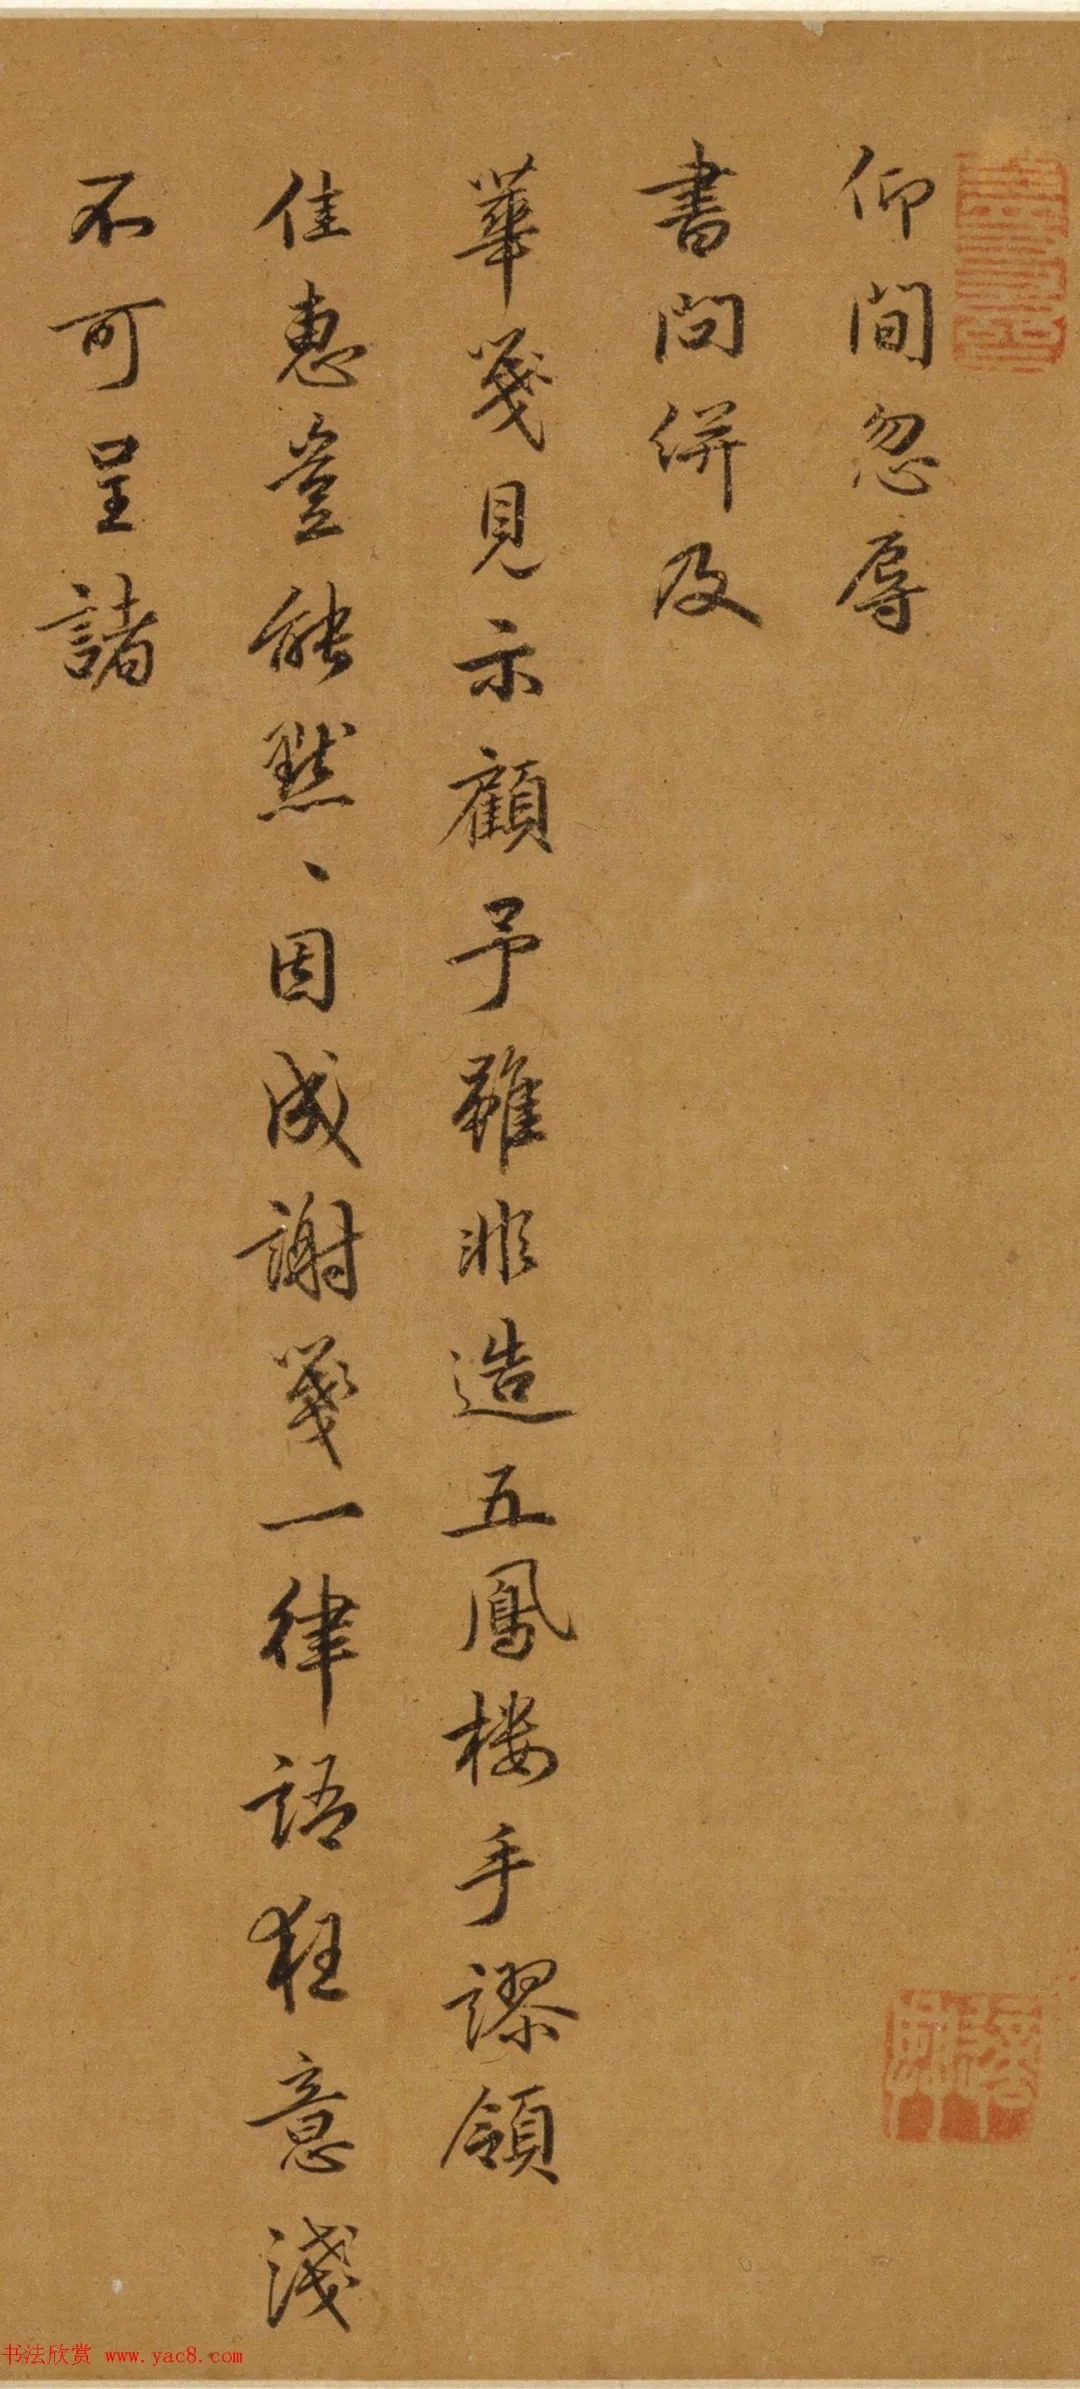 仰間忽辱
書問併及
華箋見示顧予雖非造五鳳樓手謬領
佳惠豈能默默因成謝箋一律語狂意淺
不可呈諸
书法欣赏 www.yac8.com